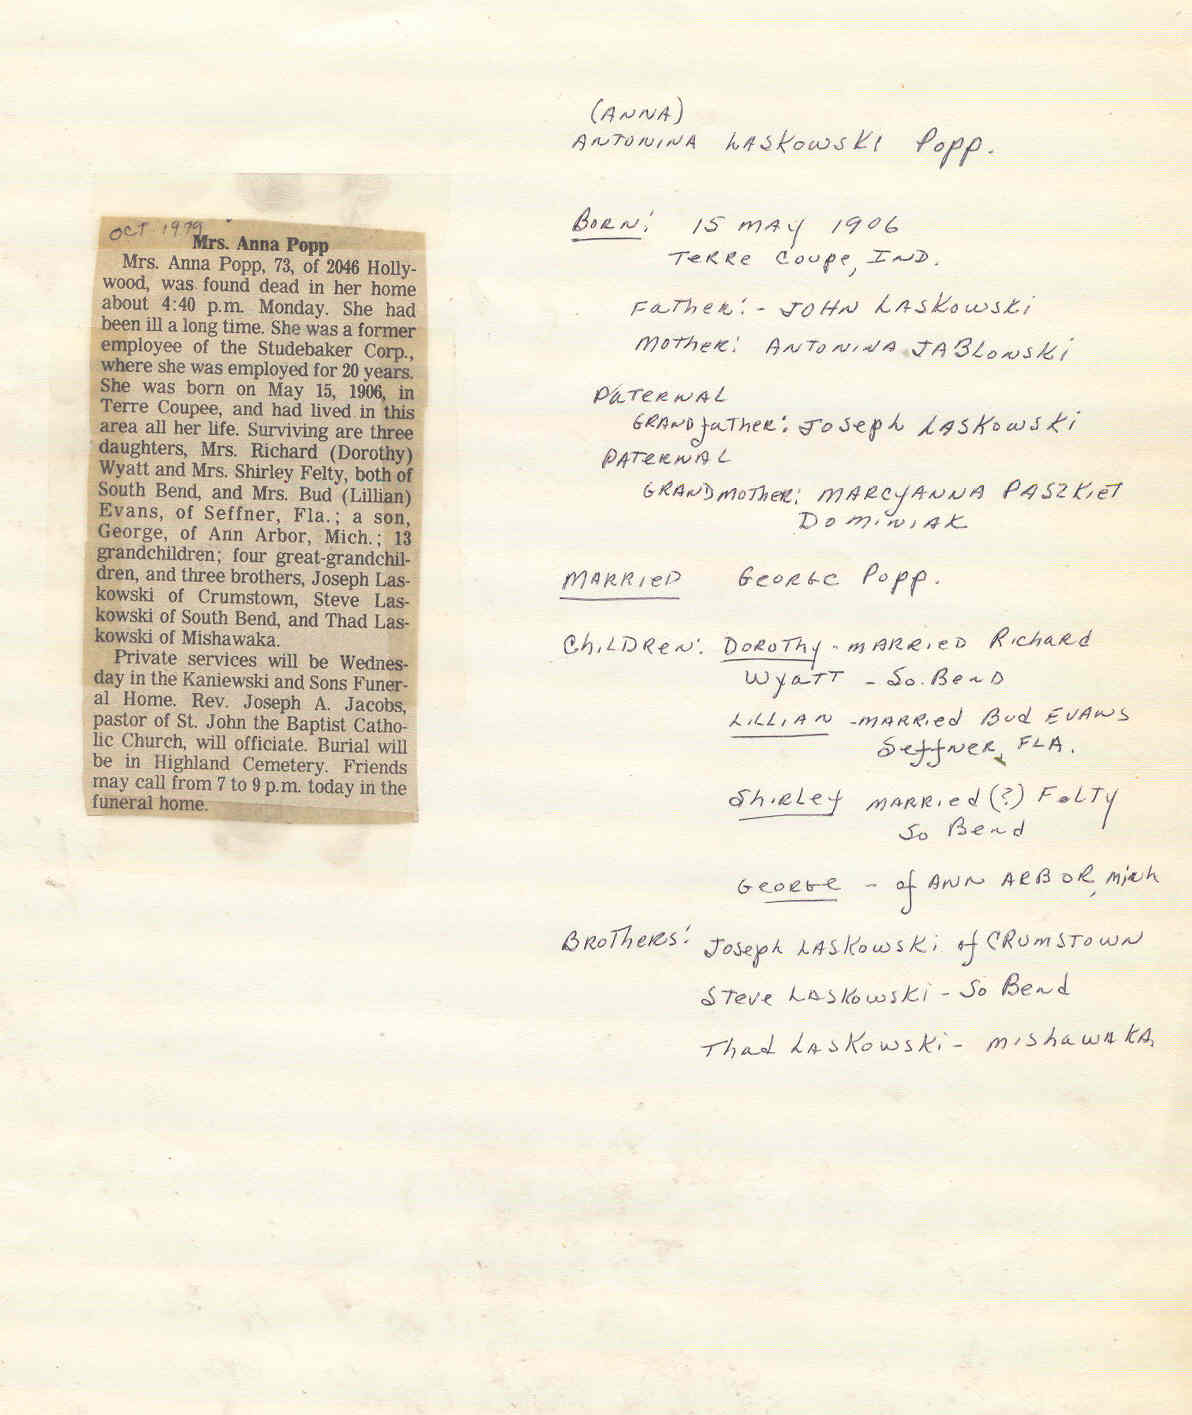 OCT 1979
Mrs. Anna Popp
Mrs. Anna Popp, 73, of 2046 Holly-
wood, was found dead in her home
about 4:40 p.m. Monday. She had
been ill a long time. She was a former
employee of the Studebaker Corp.,
where she was employed for 20 years.
She was born on May 15, 1906, in
Terre Coupee, and had lived in this
area all her life. Surviving are three
daughters, Mrs. Richard (Dorothy)
Wyatt and Mrs. Shirley Felty, both of
South Bend, and Mrs. Bud (Lillian)
Evans, of Seffner, Fla.; a son,
George, of Ann Arbor, Mich.; 13
grandchildren; four great-grandchil-
dren, and three brothers, Joseph Las-
kowski of Crumstown, Steve Las-
kowski of South Bend, and Thad Las-
kowski of Mishawaka.
Private services will be Wednes-
day in the Kaniewski and Sons Funer-
al Home. Rev. Joseph A. Jacobs,
pastor of St. John the Baptist Catho-
lic Church, will officiate. Burial will
be in Highland Cemetery. Friends
may call from 7 to 9 p.m. today in the
funeral home.
(ANNA)
ANTONINA LASKOWSKI Popp.
BORN: 15 MAY 1906
TERRE COUPE, IND.
FATHER:- JOHN LASKOWSKI
MOTHER: ANTONINA JABLONSKI
PATERNAL
GRANDFATHER: JOSEPH LASKOWSKI
PATERNAL
GRANDMOTHER: MARCYANNA PASZKIET
DOMINIAK
MARRIED GEORGE Popp.
CHILDREN: DOROTHY - MARRIED RICHARD
WYATT - SO. BEND
LILLIAN - MARRIED BUD EVANS
SEFFNER, FLA.
SHIRLEY MARRIED (?) FELTY
SO BEND
GEORGE - of ANN ARBOR, MICH
BROTHERS: JOSEPH LASKOWSKI of CRUMSTOWN
STEVE LASKOWSKI - SO BEND
THAD LASKOWSKI - MISHAWAKA